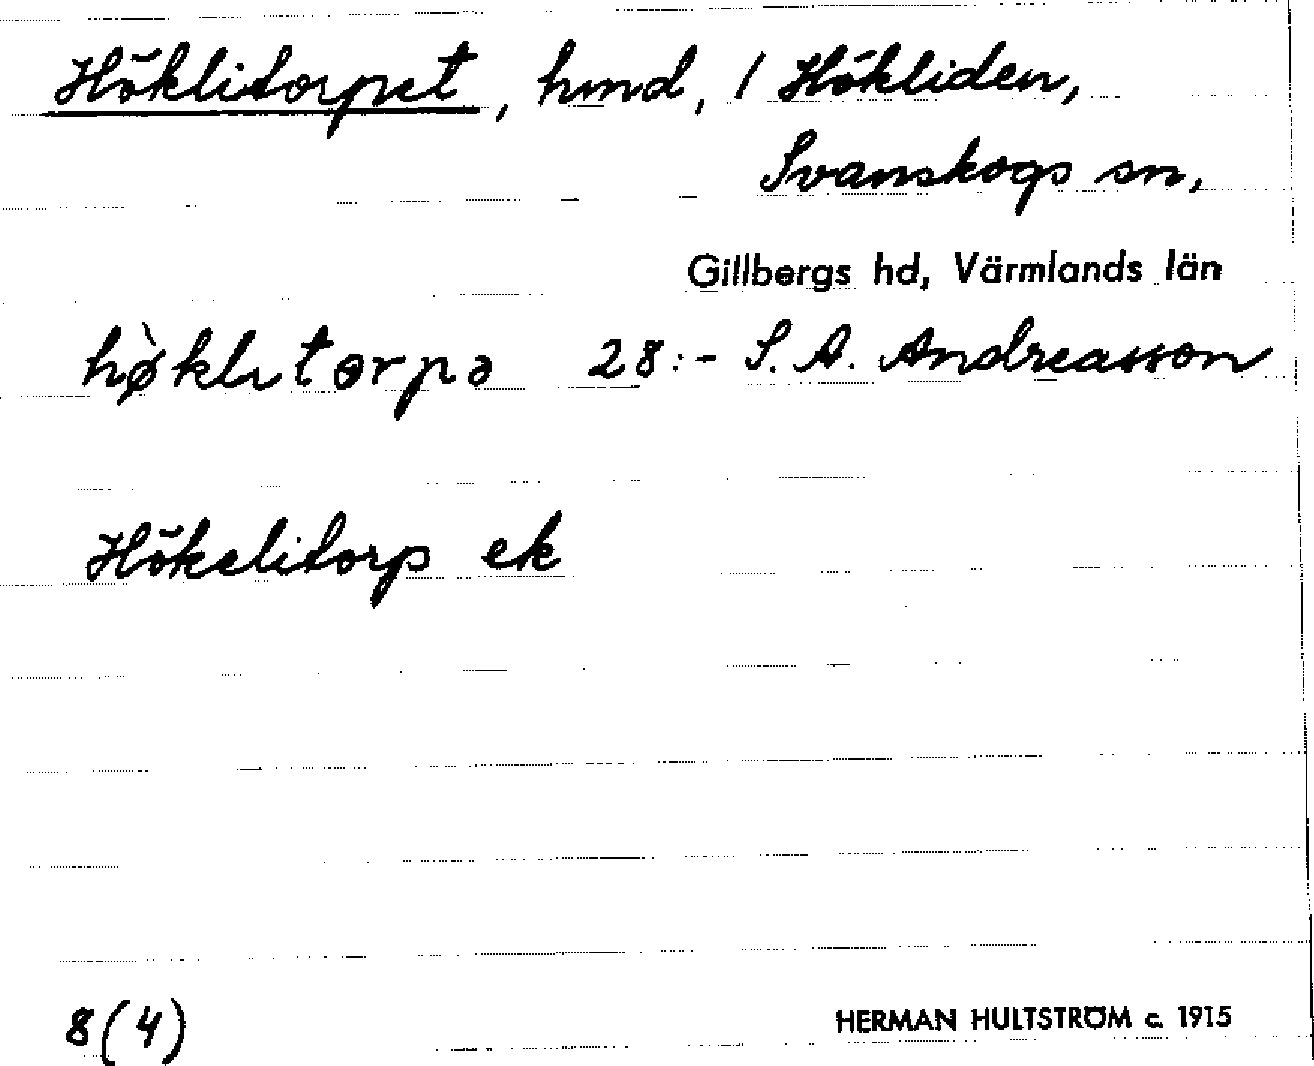 Höklitorpet, hmd, / Hökliden,
Svanskogs sn,
Gillbergs hd, Värmlands län
hø̀klɩtɵrpə 28:- S. A. Andreasson
Hökelitorp ek
8(4)
HERMAN HULTSTRÖM c. 1915